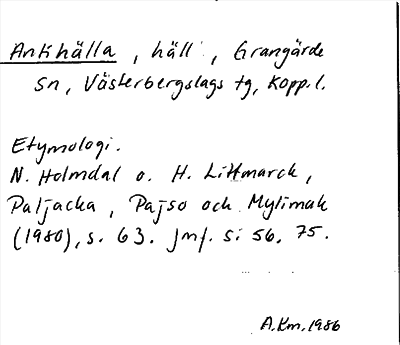 Ankhälla, häll, Grangärde
sn, Västerbergslags tg, Kopp. l.
Etymologi.
N. Holmdal o. H. Littmarck,
Paljacka, Pajso och Mylimak
(1980), s. 63. Jmf. s. 56, 75.
A.Km. 1986